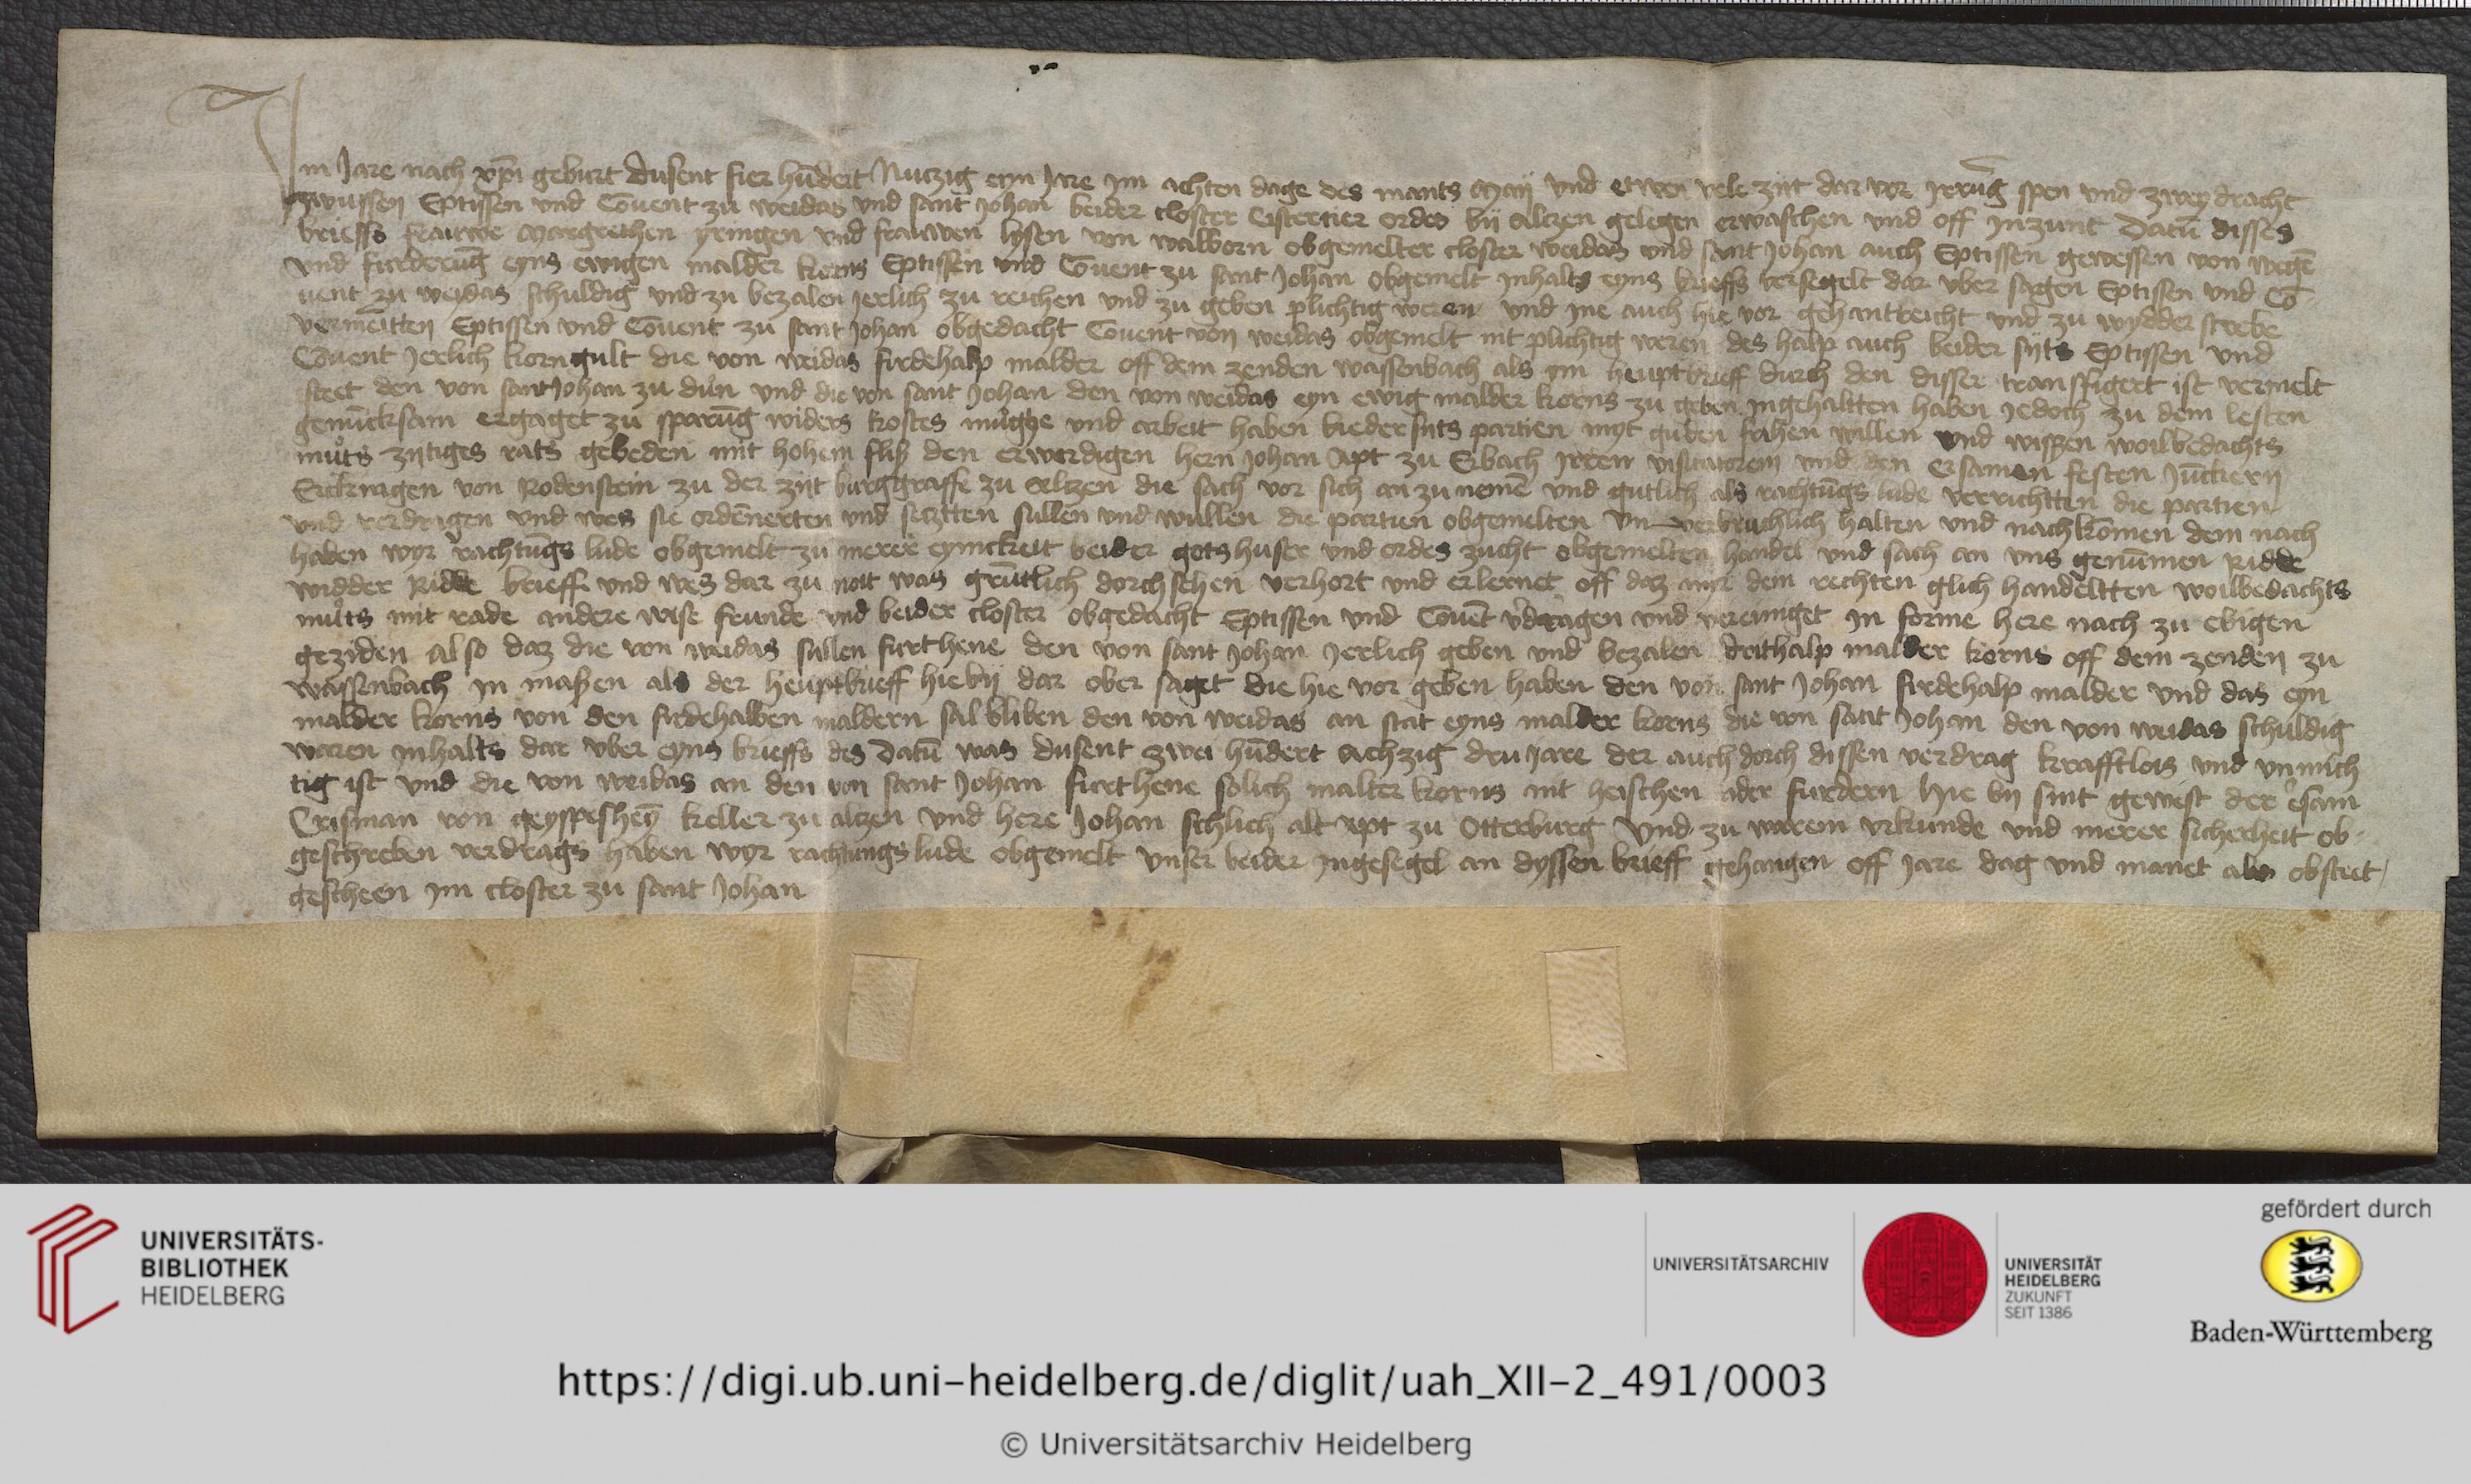 Im Jare nach xpi geburt dusent fier hūdert Nutzig eyn Jare Im achten dage des mants Maij vnd etwen vele zijt dar vor Jrrūg spen vnd zweydracht
zwussen Eptissen vnd Covent zu weidas vnd sant Johan beider closter Cistertier ordēs bij altzen gelegen erwaschen vnd off Jnzunt Datū disses
brieffs frauwe Margrethen yringen vnd frauwen lysen von walborn obgemelter closter weidas vnd sant Johan auch Eptissen gewessen von wegē
vnd furderūg eyns ewigen malder korns Eptissen vnd Covent zu sant Johan obgemelt Jnhalts eyns brieffs versegelt dar vber sagen Eptissen vnd Cō-
uent zu weidas schuldig vnd zu bezalen Jerlich zu reichen vnd zu geben plichtig weren vnd Jne auch hie vor gehantreicht vnd zu wydder strebe
vermeitten Eptissen vnd Covent zu sant Johan obgedacht Covent von weidas obgemelt nit plichtig weren des halp auch beider sijts Eptissen vnd
Covent Jerlich korngult die von weidas firdehalp malder off dem zenden wassenbach als ym heuptbrieff durch den disser transfigert ist vermelt
steet den von sant Johan zu dūn vnd die von sant Johan den von weidas eyn ewig malder korns zu geben Jngehaltten haben Jedoch zu dem lesten
genūcksam ergaget zu sparūg widers kostes mughe vnd arbeit haben biedersijts partien myt guden frihen willen vnd wissen woilbedachts
muts zijtiges rats gebeden mit hohem fliß den erwerdigen hern Johan Apt zu Erbach Jrren visitatorem vnd den ersamen festen Jūckern
Erckingen von Rodenstein zu der zijt burggraffe zu altzen die sach vor sich an zu nemē vnd gutlich als rachtūgs lude verrichtten die partien
vnd verdragen vnd wes sie ordēnerten vnd setztten sullen vnd wullen die partien obgemelten vn verbruchlich halten vnd nachkōmen dem nach
haben wyr rachtūgs lude obgemelt zu merer eynickeit beider gotshuser vnd ordes zucht obgemelten handel vnd sach an vns genūmen Ridde
widder Ridde brieffe vnd wes dar zu noit was grūtlich dorchsehen verhort vnd erlernet off daz wir dem rechten glich handeltten woilbedachts
muts mit rade andere wise frunde vnd beider closter obgedacht Eptissen vnd Covēt vdragen vnd vereiniget Jn forme here nach zu ebigen
geziden also daz die von weidas sullen furthene den von sant Johan Jerlich geben vnd bezalen drithalp malder korns off dem zenden zu
wassenbach Jn maßen als der heuptbrieff hiebij dar ober saget die hie vor geben haben den von sant Johan firdehalp malder vnd das eyn
malder korns von den firdehalben maldern sal bliben den von weidas an stat eyns malder korns die von sant Johan den von weidas schuldig
waren Jnhalts dar vber eyns brieffs des Datū was dusent zwei hūdert achzig dru Jare der auch dorch dissen verdrag krafftlois vnd vnmich
tig ist vnd die von weidas an den von sant Johan furthene solich malter korns nit heischen ader furdern Hie bij sint gewest der ersam
Crisman von geyspeshey keller zu altzen vnd here Johan schlich alt apt zu Otterburg Vnd zu warem vrkunde vnd merer sicherheit ob-
geschreben verdrags haben wyr rachtungs lude obgemelt vnser beider Jngesegel an dyssen brieff gehangen off Jare dag vnd manet als obsteet
gescheen Jm closter zu sant Johan
UNIVERSITÄTS-
BIBLIOTHEK
HEIDELBERG
UNIVERSITÄTSARCHIV
UNIVERSITÄT
HEIDELBERG
ZUKUNFT
SEIT 1386
gefördert durch
Baden-Württemberg
https://digi.ub.uni-heidelberg.de/diglit/uah_XII-2_491/0003
© Universitätsarchiv Heidelberg